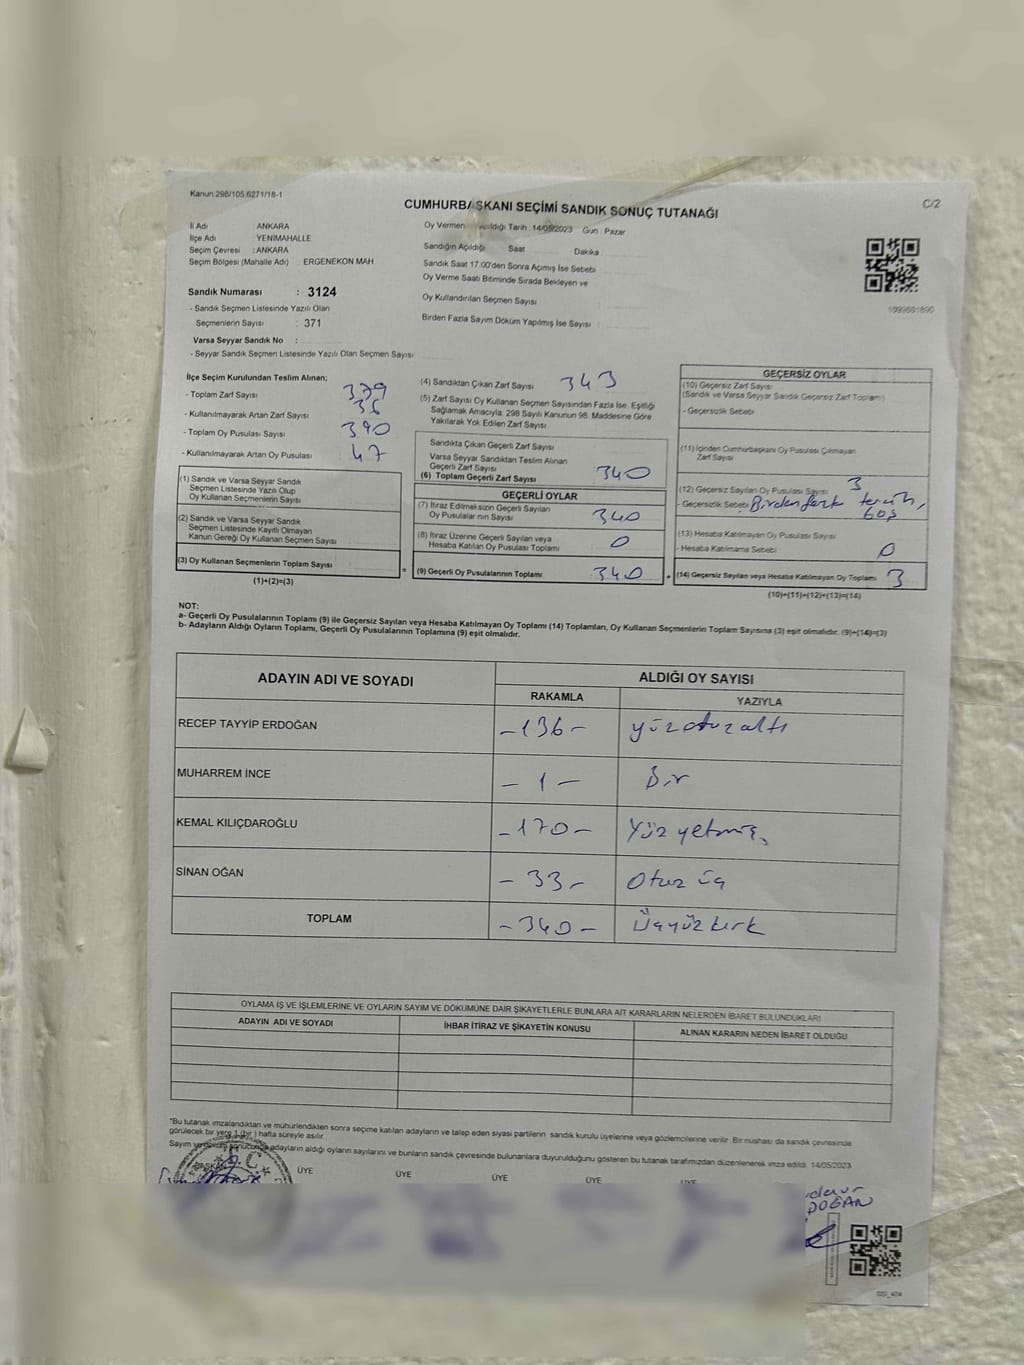 Kanun:298/105 6271/18-1
C/2
CUMHURBAŞKANI SEÇİMİ SANDIK SONUÇ TUTANAĞI
İl Adı ANKARA
İlçe Adı YENİMAHALLE
Seçim Çevresi : ANKARA
Seçim Bölgesi (Mahalle Adı) : ERGENEKON MAH.
Sandık Numarası : 3124
- Sandık Seçmen Listesinde Yazılı Olan
Seçmenlerin Sayısı : 371
Varsa Seyyar Sandık No :
- Seyyar Sandık Seçmen Listesinde Yazılı Olan Seçmen Sayısı
Oy Vermenin Tarih : 14/05/2023 Gün : Pazar
Sandığın Açıldığı Saat Dakika
Sandık Saat 17:00'den Sonra Açılmış İse Sebebi
Oy Verme Saati Bitiminde Sırada Bekleyen ve
Oy Kullandırılan Seçmen Sayısı
Birden Fazla Sayım Döküm Yapılmış İse Sayısı
İlçe Seçim Kurulundan Teslim Alınan;
- Toplam Zarf Sayısı 379
- Kullanılmayarak Artan Zarf Sayısı 36
- Toplam Oy Pusulası Sayısı 390
- Kullanılmayarak Artan Oy Pusulası 47
(1) Sandık ve Varsa Seyyar Sandık
Seçmen Listesinde Yazılı Olup
Oy Kullanan Seçmenlerin Sayısı
(2) Sandık ve Varsa Seyyar Sandık
Seçmen Listesinde Kayıtlı Olmayan
Kanun Gereği Oy Kullanan Seçmen Sayısı
(3) Oy Kullanan Seçmenlerin Toplam Sayısı
(1)+(2)=(3)
(4) Sandıktan Çıkan Zarf Sayısı 343
(5) Zarf Sayısı Oy Kullanan Seçmen Sayısından Fazla İse, Eşitliği
Sağlamak Amacıyla, 298 Sayılı Kanunun 98. Maddesine Göre
Yakılarak Yok Edilen Zarf Sayısı
Sandıkta Çıkan Geçerli Zarf Sayısı
Varsa Seyyar Sandıktan Teslim Alınan
Geçerli Zarf Sayısı
(6) Toplam Geçerli Zarf Sayısı 340
GEÇERLİ OYLAR
(7) İtiraz Edilmeksizin Geçerli Sayılan
Oy Pusulalarının Sayısı 340
(8) İtiraz Üzerine Geçerli Sayılan veya
Hesaba Katılan Oy Pusulası Toplamı 0
= (9) Geçerli Oy Pusulalarının Toplamı 340
GEÇERSİZ OYLAR
(10) Geçersiz Zarf Sayısı
(Sandık ve Varsa Seyyar Sandık Geçersiz Zarf Toplamı)
- Geçersizlik Sebebi
(11) İçinden Cumhurbaşkanı Oy Pusulası Çıkmayan
Zarf Sayısı
(12) Geçersiz Sayılan Oy Pusulası Sayısı 3
- Geçersizlik Sebebi Birden fazla tercih,
boş
(13) Hesaba Katılmayan Oy Pusulası Sayısı
- Hesaba Katılmama Sebebi 0
+ (14) Geçersiz Sayılan veya Hesaba Katılmayan Oy Toplamı 3
(10)+(11)+(12)+(13)=(14)
NOT:
a- Geçerli Oy Pusulalarının Toplamı (9) ile Geçersiz Sayılan veya Hesaba Katılmayan Oy Toplamı (14) Toplamları, Oy Kullanan Seçmenlerin Toplam Sayısına (3) eşit olmalıdır. (9)+(14)=(3)
b- Adayların Aldığı Oyların Toplamı, Geçerli Oy Pusulalarının Toplamına (9) eşit olmalıdır.
ADAYIN ADI VE SOYADI ALDIĞI OY SAYISI
RAKAMLA YAZIYLA
RECEP TAYYİP ERDOĞAN -136- yüzotuzaltı
MUHARREM İNCE -1- Bir
KEMAL KILIÇDAROĞLU -170- Yüz yetmiş
SİNAN OĞAN -33- Otuz üç
TOPLAM -340- Üçyüzkırk
OYLAMA İŞ VE İŞLEMLERİNE VE OYLARIN SAYIM VE DÖKÜMÜNE DAİR ŞİKAYETLERLE BUNLARA AİT KARARLARIN NELERDEN İBARET BULUNDUKLARI
ADAYIN ADI VE SOYADI İHBAR İTİRAZ VE ŞİKAYETİN KONUSU ALINAN KARARIN NEDEN İBARET OLDUĞU
*Bu tutanak imzalandıktan ve mühürlendikten sonra seçime katılan adayların ve talep eden siyasi partilerin sandık kurulu üyelerine veya gözlemcilerine verilir. Bir nüshası da sandık çevresinde
görülecek bir yere 1 (bir) hafta süreyle asılır.
Sayım ve döküm sonucunda adayların aldığı oyların sayılarını ve bunların sandık çevresinde bulunanlara duyurulduğunu gösteren bu tutanak tarafımızdan düzenlenerek imza edildi. 14/05/2023
BAŞKAN ÜYE ÜYE ÜYE ÜYE ÜYE
DOĞAN